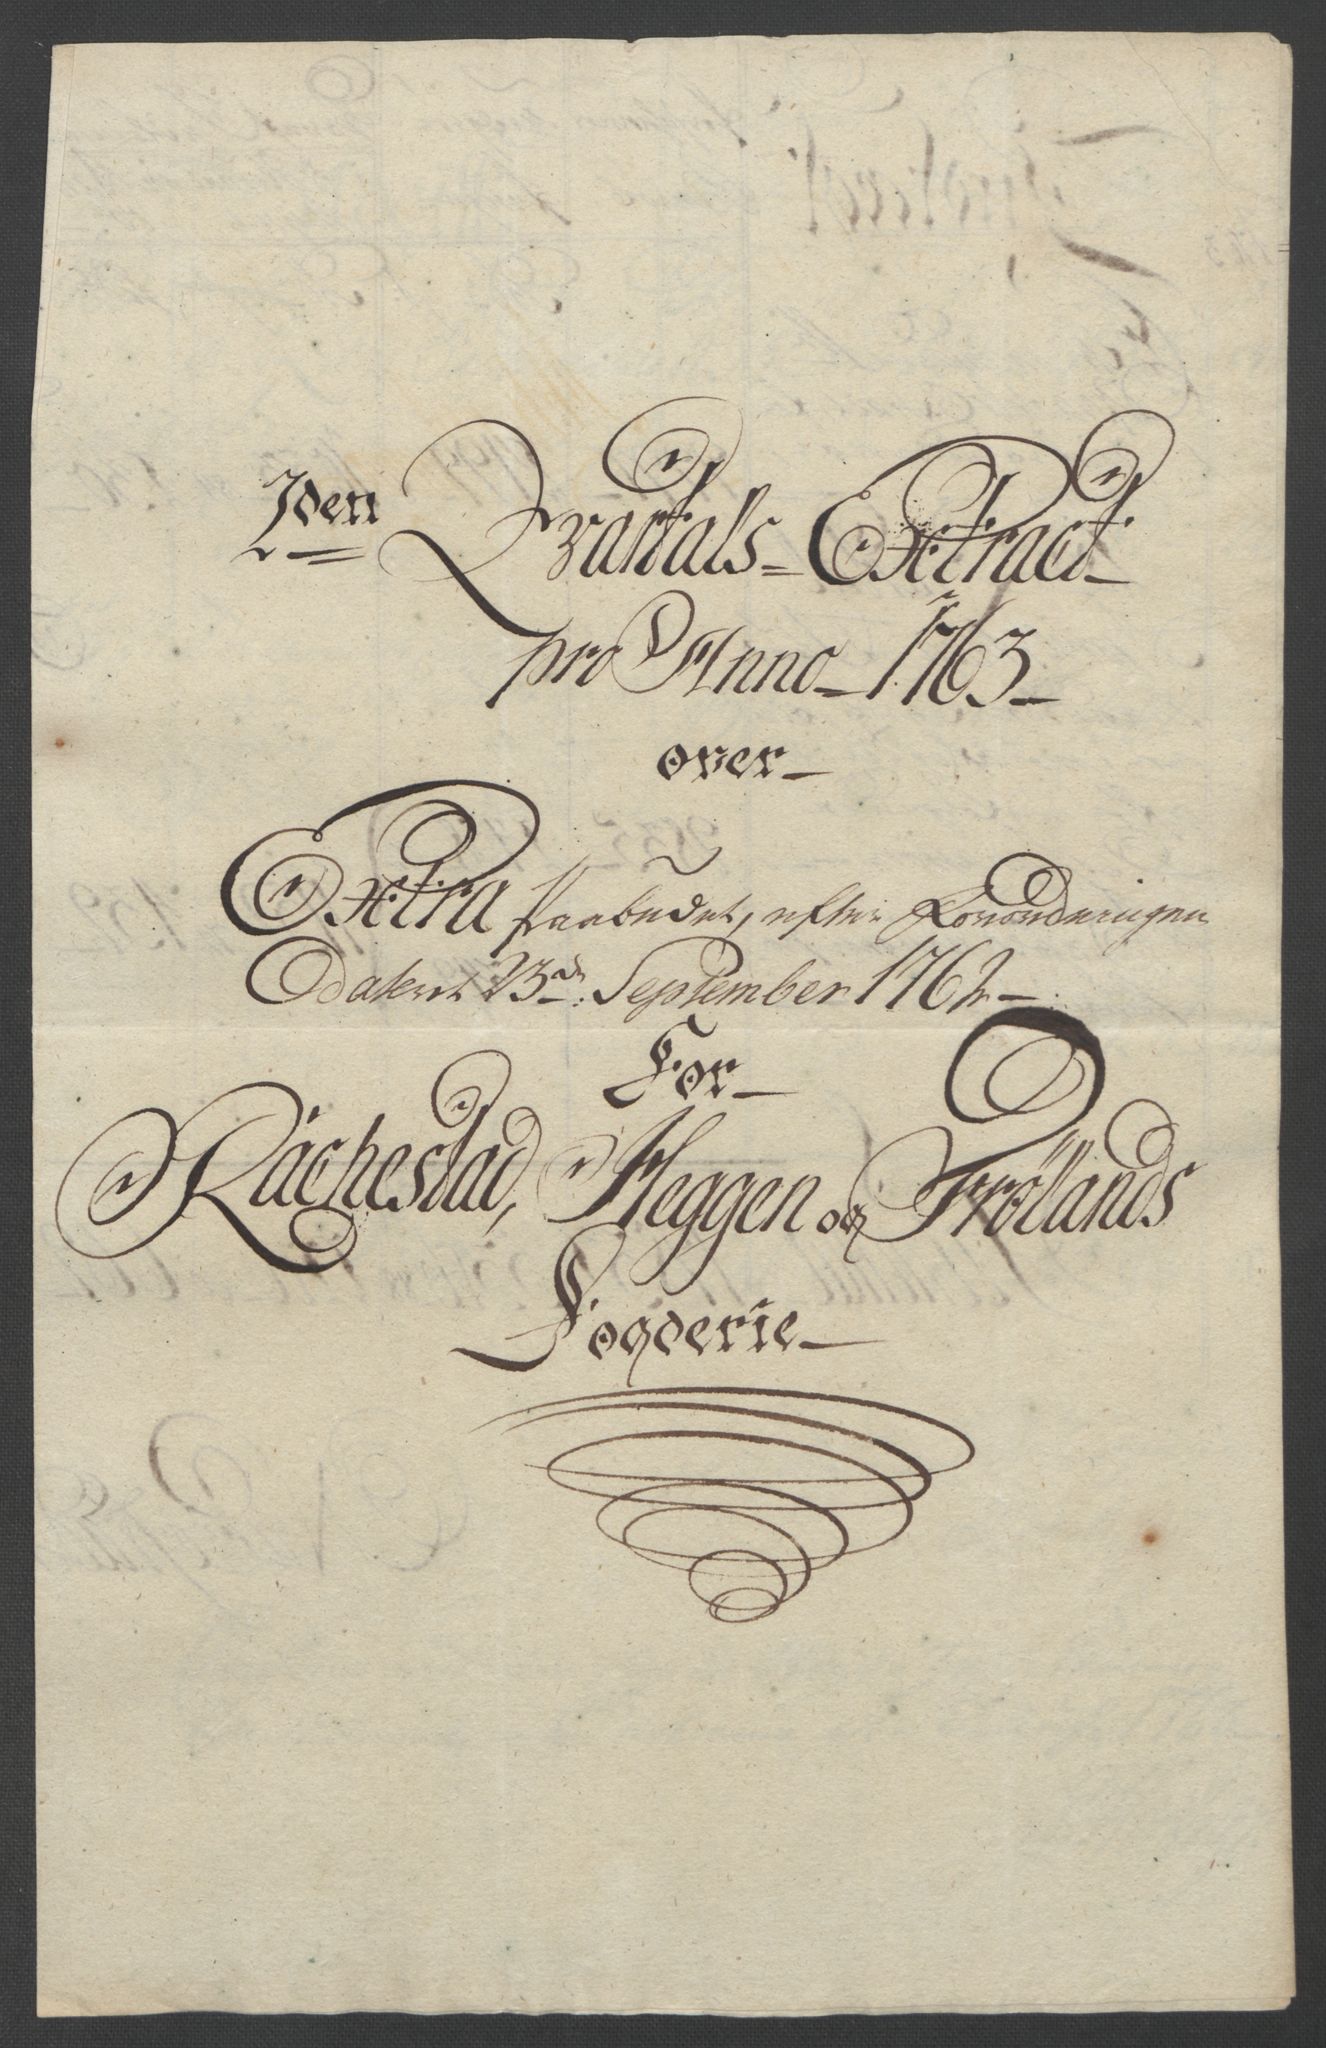 2den Qvartals- Extract
pro Anno 1763
over
Extra Paabudet, efter Forordningen
dateret 23de September 1762
For
Rachestad, Heggen og Frølands
Fogderie